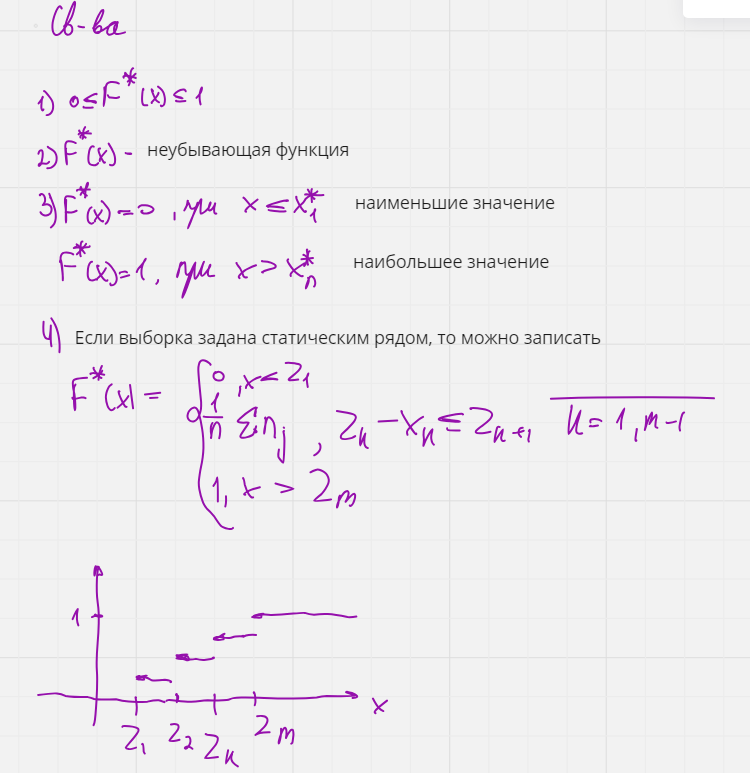 Св-ва
1) 0 ≤ F*(x) ≤ 1
2) F*(x) - неубывающая функция
3) F*(x) = 0, при x ≤ x₁* наименьшие значение
F*(x) = 1, при x > xₙ* наибольшее значение
4) Если выборка задана статическим рядом, то можно записать
F*(x) =
0, x ≤ z₁
1/n Σnⱼ, zₖ - xₖ ≤ zₖ₊₁, k = 1, m-1
1, x > zₘ
1
x
z₁ z₂ zₖ zₘ